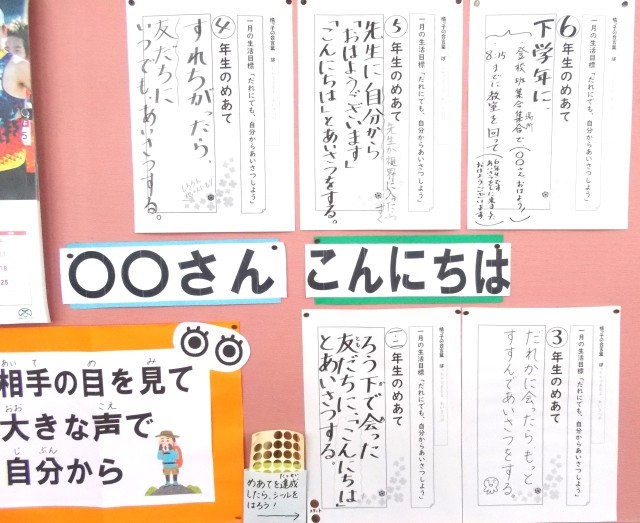 鳩っ子の合言葉 は
一月の生活目標「だれにでも、自分からあいさつしよう」
6年生のめあて
下学年に、
登校班集合場所で(〇〇さんおはよう!)
8:15までに教室を回って
おはようございます
鳩っ子の合言葉 は
一月の生活目標「だれにでも、自分からあいさつしよう」
⑤年生のめあて
先生に自分から
「おはようございます」
「こんにちは」とあいさつをする。
先生が視界に入ったら
すぐ
一月の生活目標「だれにでも、自分からあいさつしよう」
④年生のめあて
すれちがったら、
友だちに
いつでも、あいさつする。
〇〇さん
こんにちは
相手の目を見て
あいて め み
大きな声で
おお こえ
自分から
じぶん
めあてを達成
たっせい
したら、シールを
はろう!
鳩っ子の合言葉 は
一月の生活目標「だれにでも、自分からあいさつしよう」
③年生のめあて
だれかに会ったらもっと
すすんであいさつをする
鳩っ子の合言葉 は
一月の生活目標「だれにでも、自分からあいさつしよう」
一・二年生のめあて
ろう下で会った
友だちに、「こんにちは」
とあいさつする。
スタート